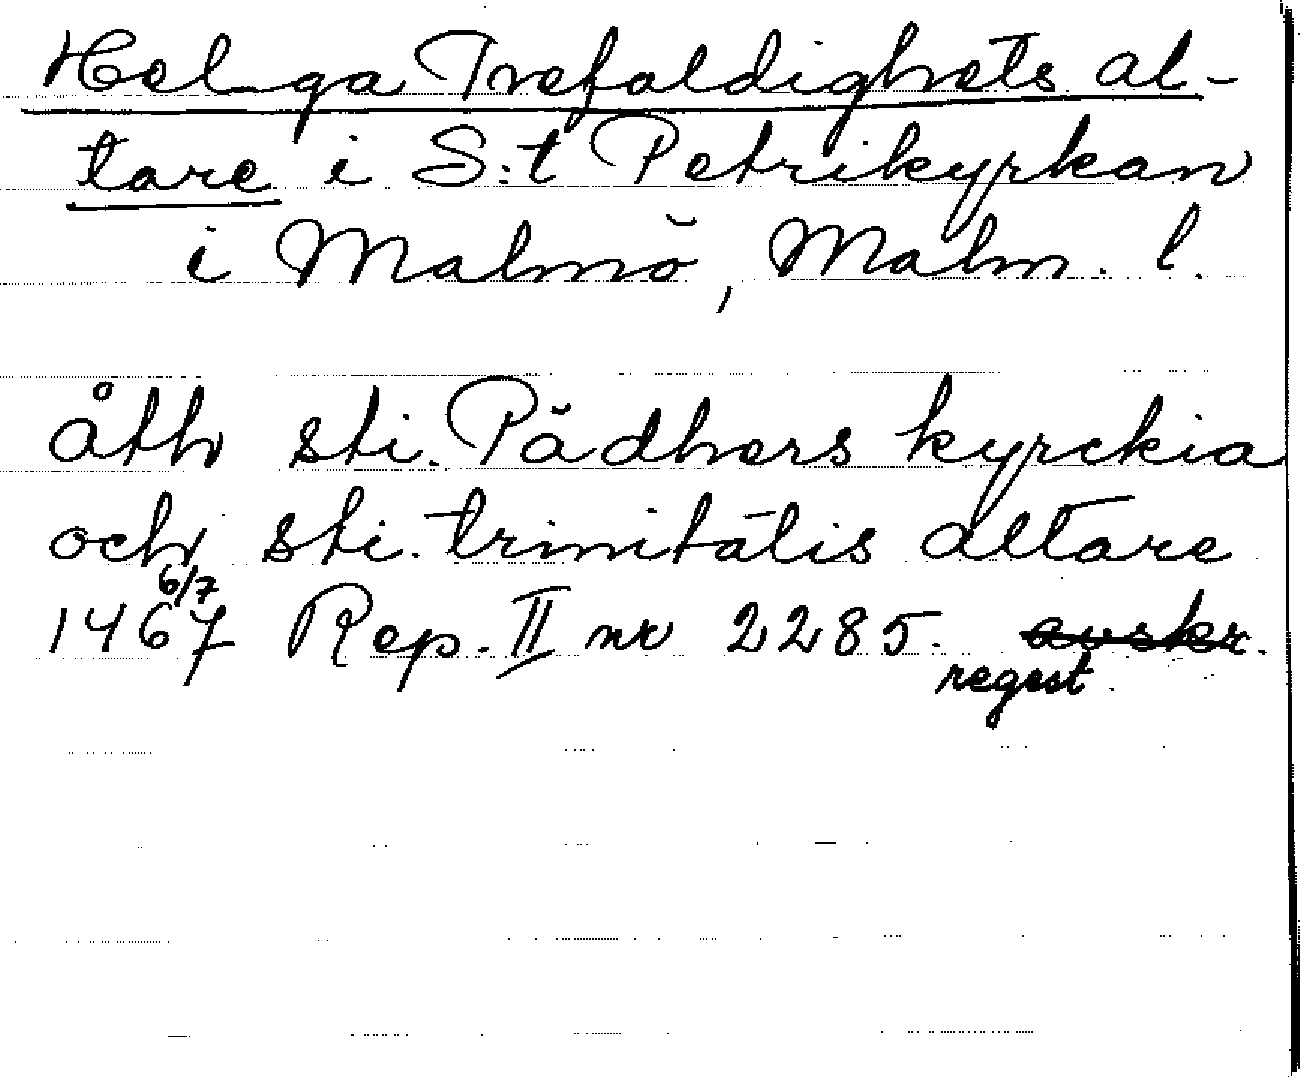 Helga Trefaldighets al-
tare i S:t Petrikyrkan
i Malmö, Malm. l.
åth sti. Pädhers kyrckia
och sti. trinitatis altare
6/7
1467 Rep. II nr 2285. avskr.
regest.